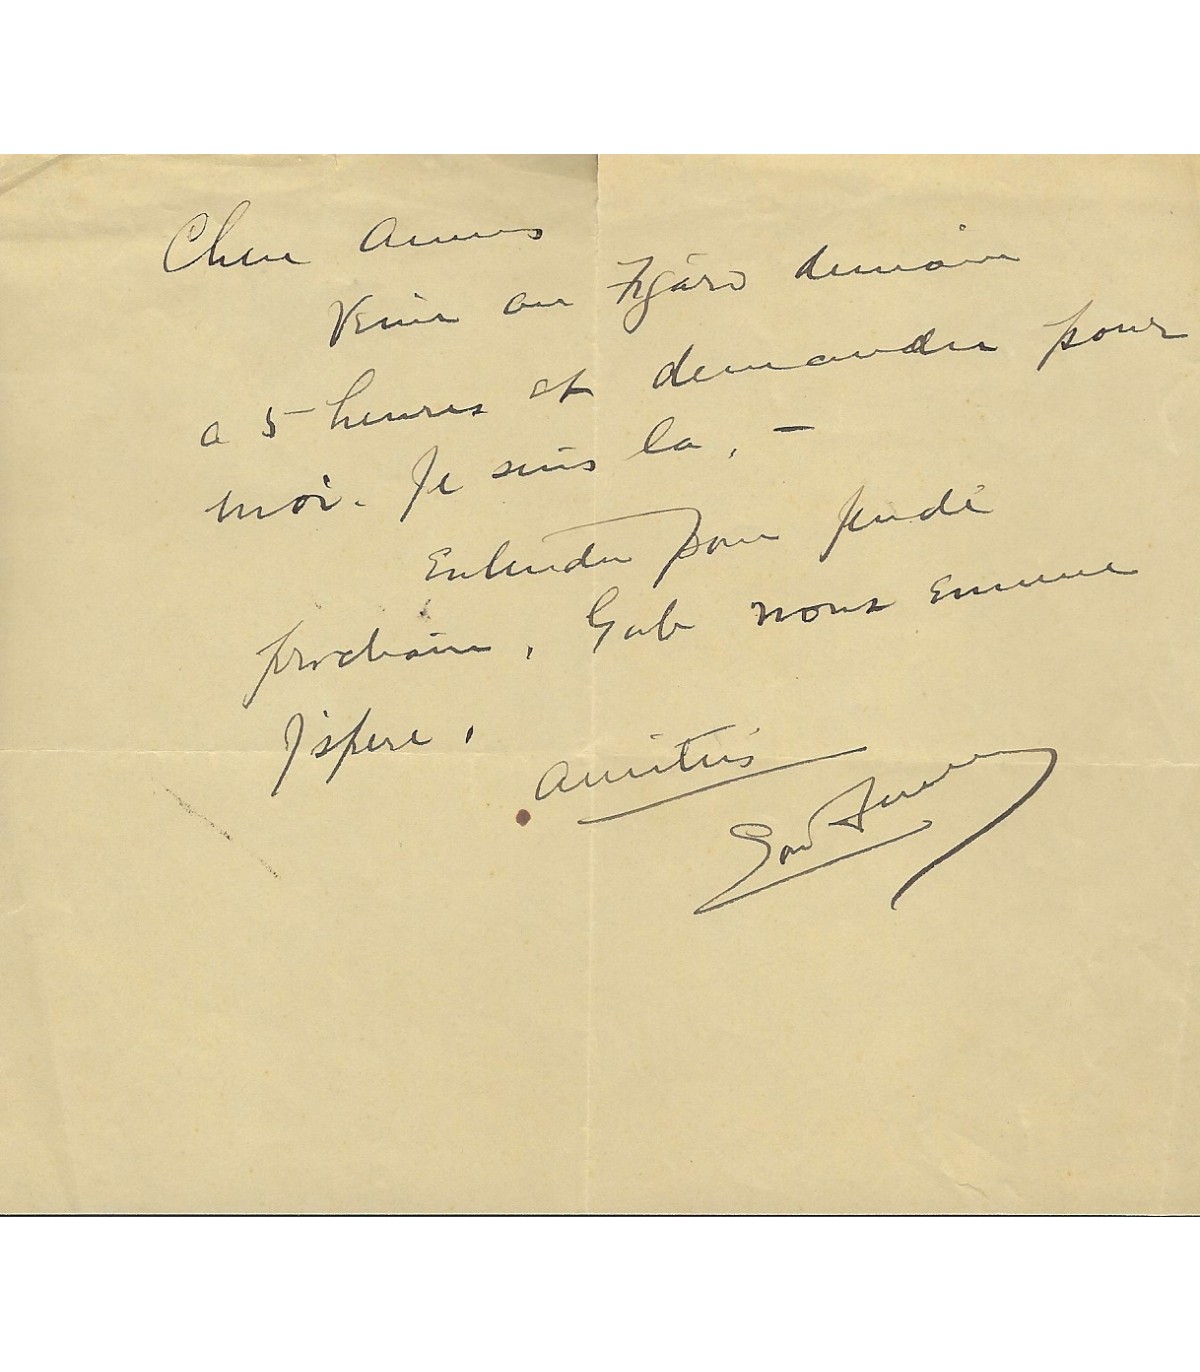 Chers amis
Venir au Figaro demain
a 5 heures et demander pour
moi. Je suis la, –
Entendu pour jeudi
prochain, Gab nous emmene
J'espere,
amitiés